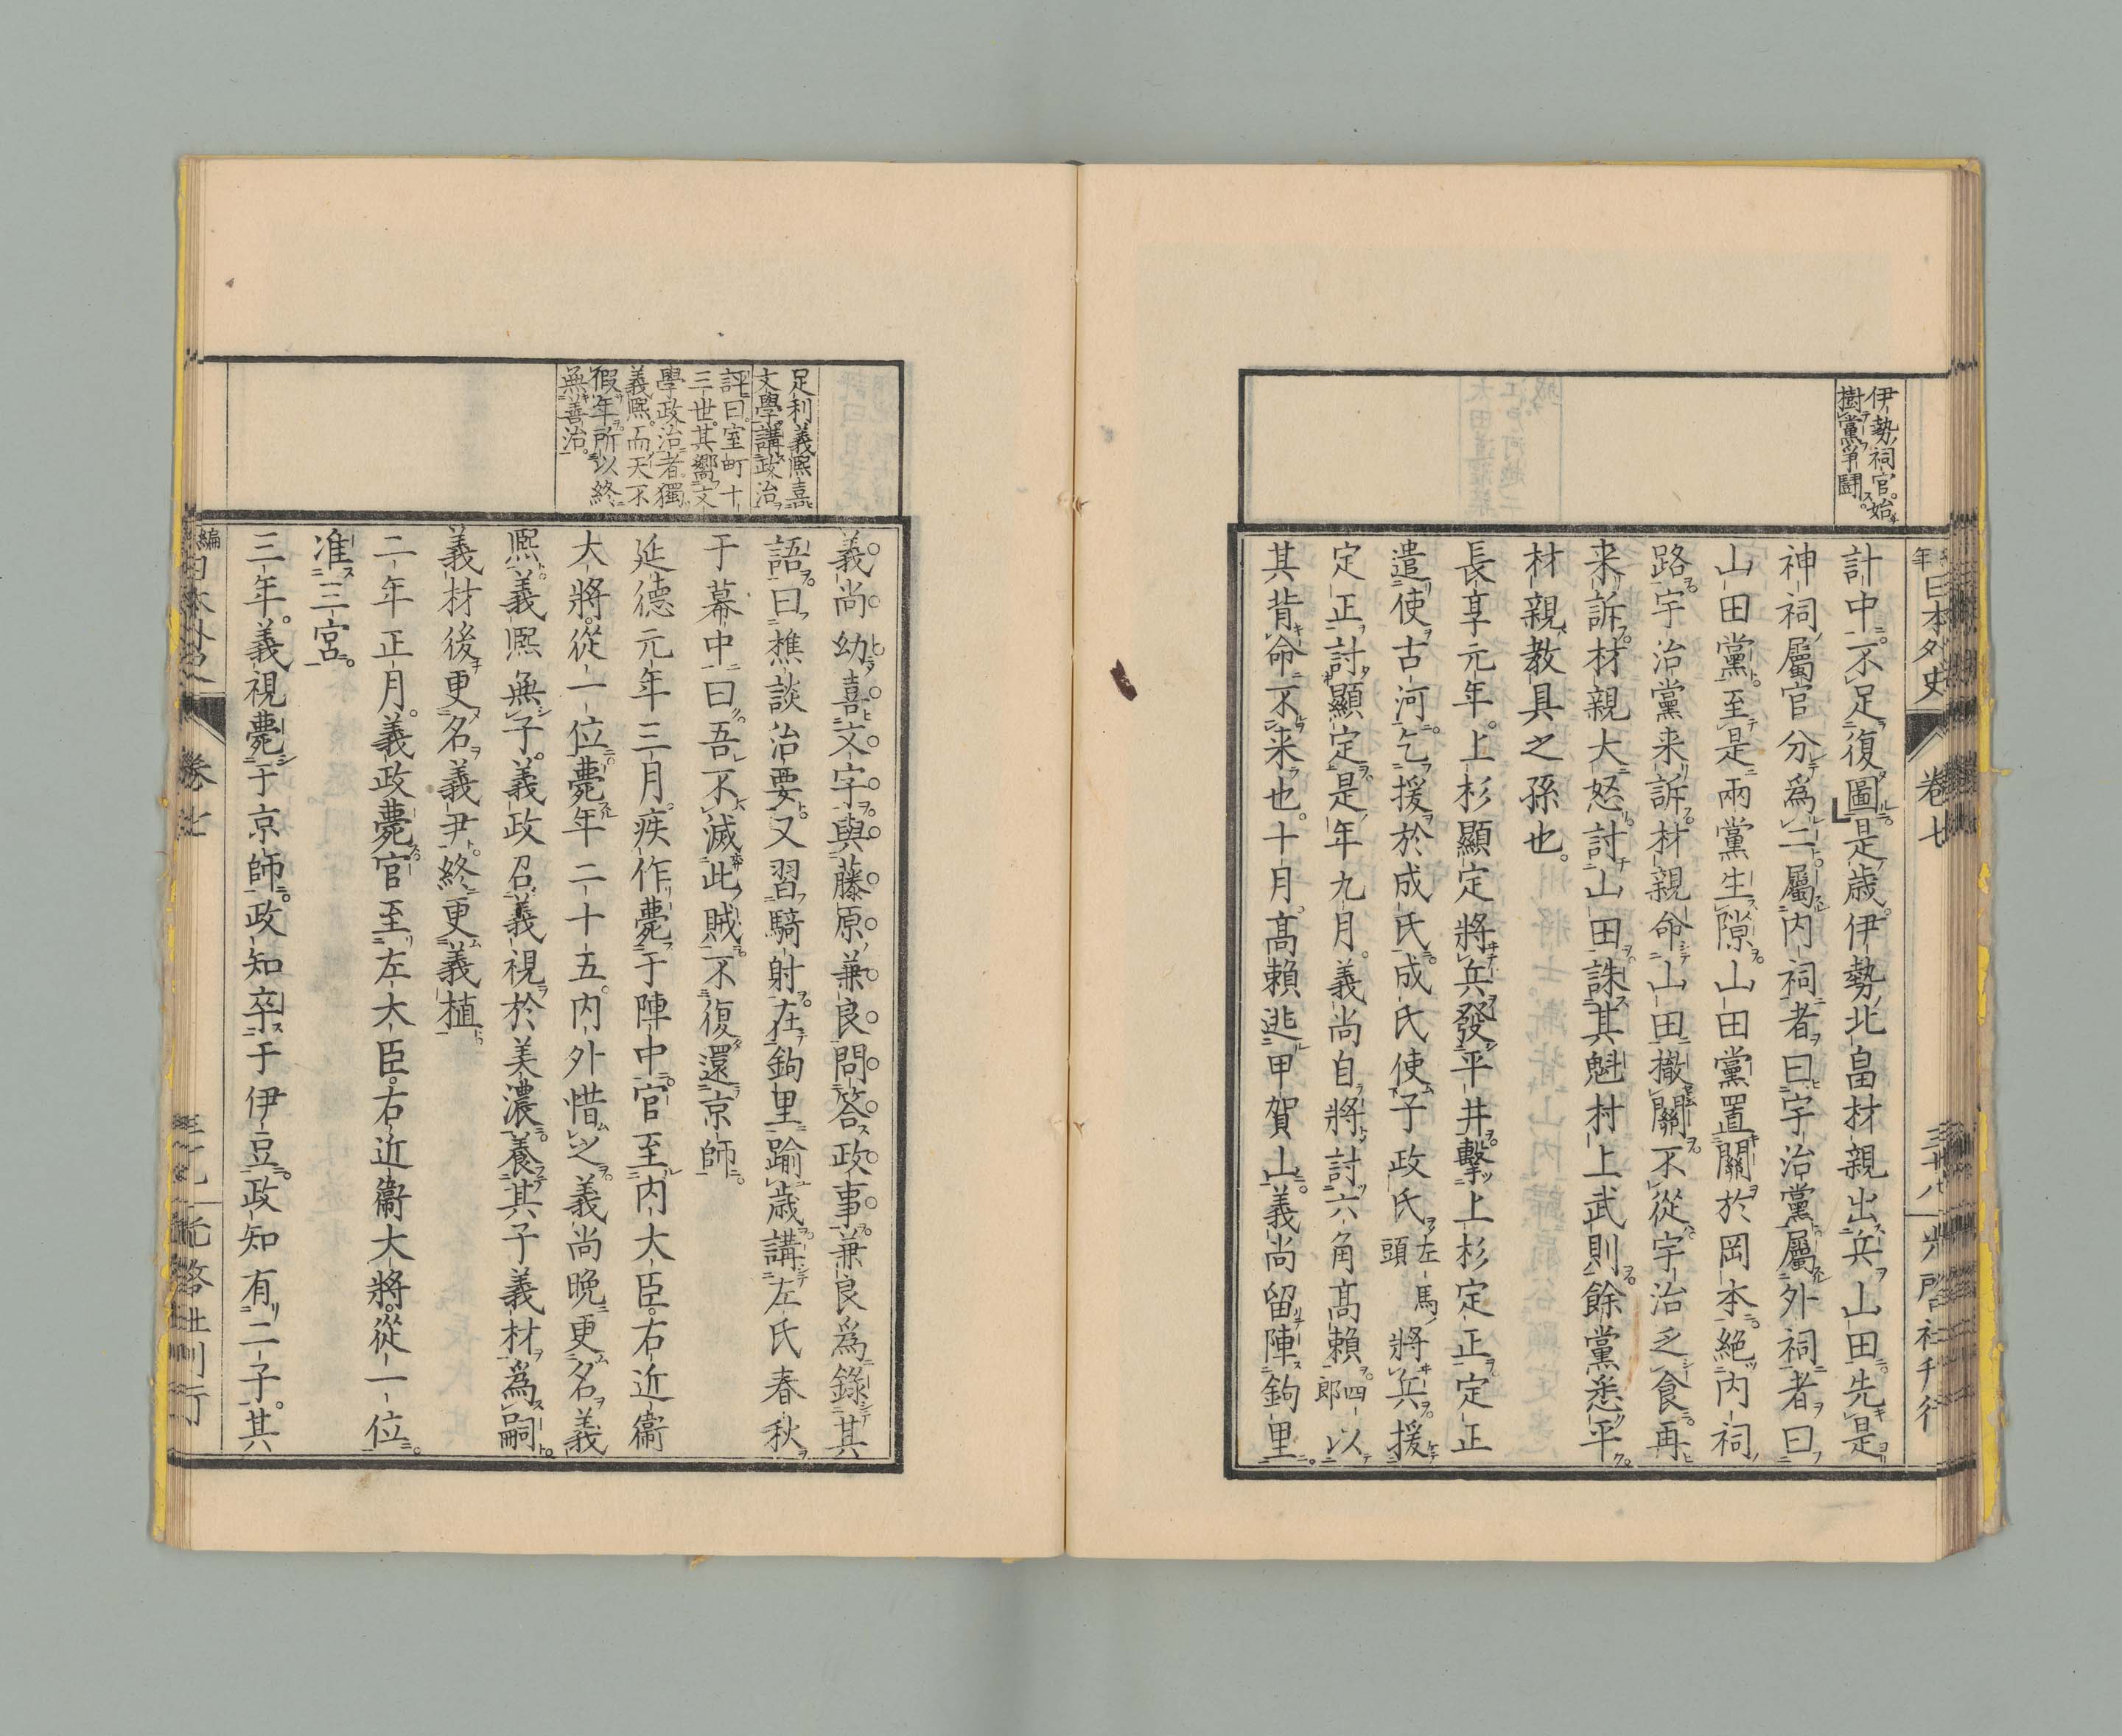 伊勢祠官始
樹黨爭鬪
日本外史 卷七 三十八 光啓社刊行
計中不足復圖是歳伊勢北畠材親出兵山田先是
神祠屬官分爲二屬内祠者曰宇治黨屬外祠者曰
山田黨至是兩黨生隙山田黨置關於岡本絶内祠
路宇治黨来訴材親命山田撤關不從宇治乏食再
来訴材親大怒討山田誅其魁村上武則餘黨悉平
材親教具之孫也。
長享元年。上杉顯定將兵發平井擊上杉定正定正
遣使古河乞援於成氏成氏使子政氏左馬頭將兵援
定正討顯定是年九月。義尚自將討六角高賴四郎以
其背命不来也。十月。高賴逃甲賀山義尚留陣鉤里
足利義熙喜
文學講政治
評曰。室町十
三世。其嚮文
學政治者獨
義熙。而天不
假年所以終
無善治。
義尚幼喜文字與藤原兼良問答政事兼良爲錄其
語曰樵談治要又習騎射在鉤里踰歳講左氏春秋
于幕中曰吾不滅此賊不復還京師
延德元年三月。疾作薨于陣中官至内大臣。右近衞
大將。從一位薨年二十五。内外惜之義尚晩更名義
熙義熙無子義政召義視於美濃養其子義材爲嗣
義材後更名義尹終更義植
二年正月。義政薨官至左大臣。右近衞大將。從一位
准三宮
三年。義視薨于京師政知卒于伊豆政知有二子。其
編 日本外史 卷七 光啓社刊行